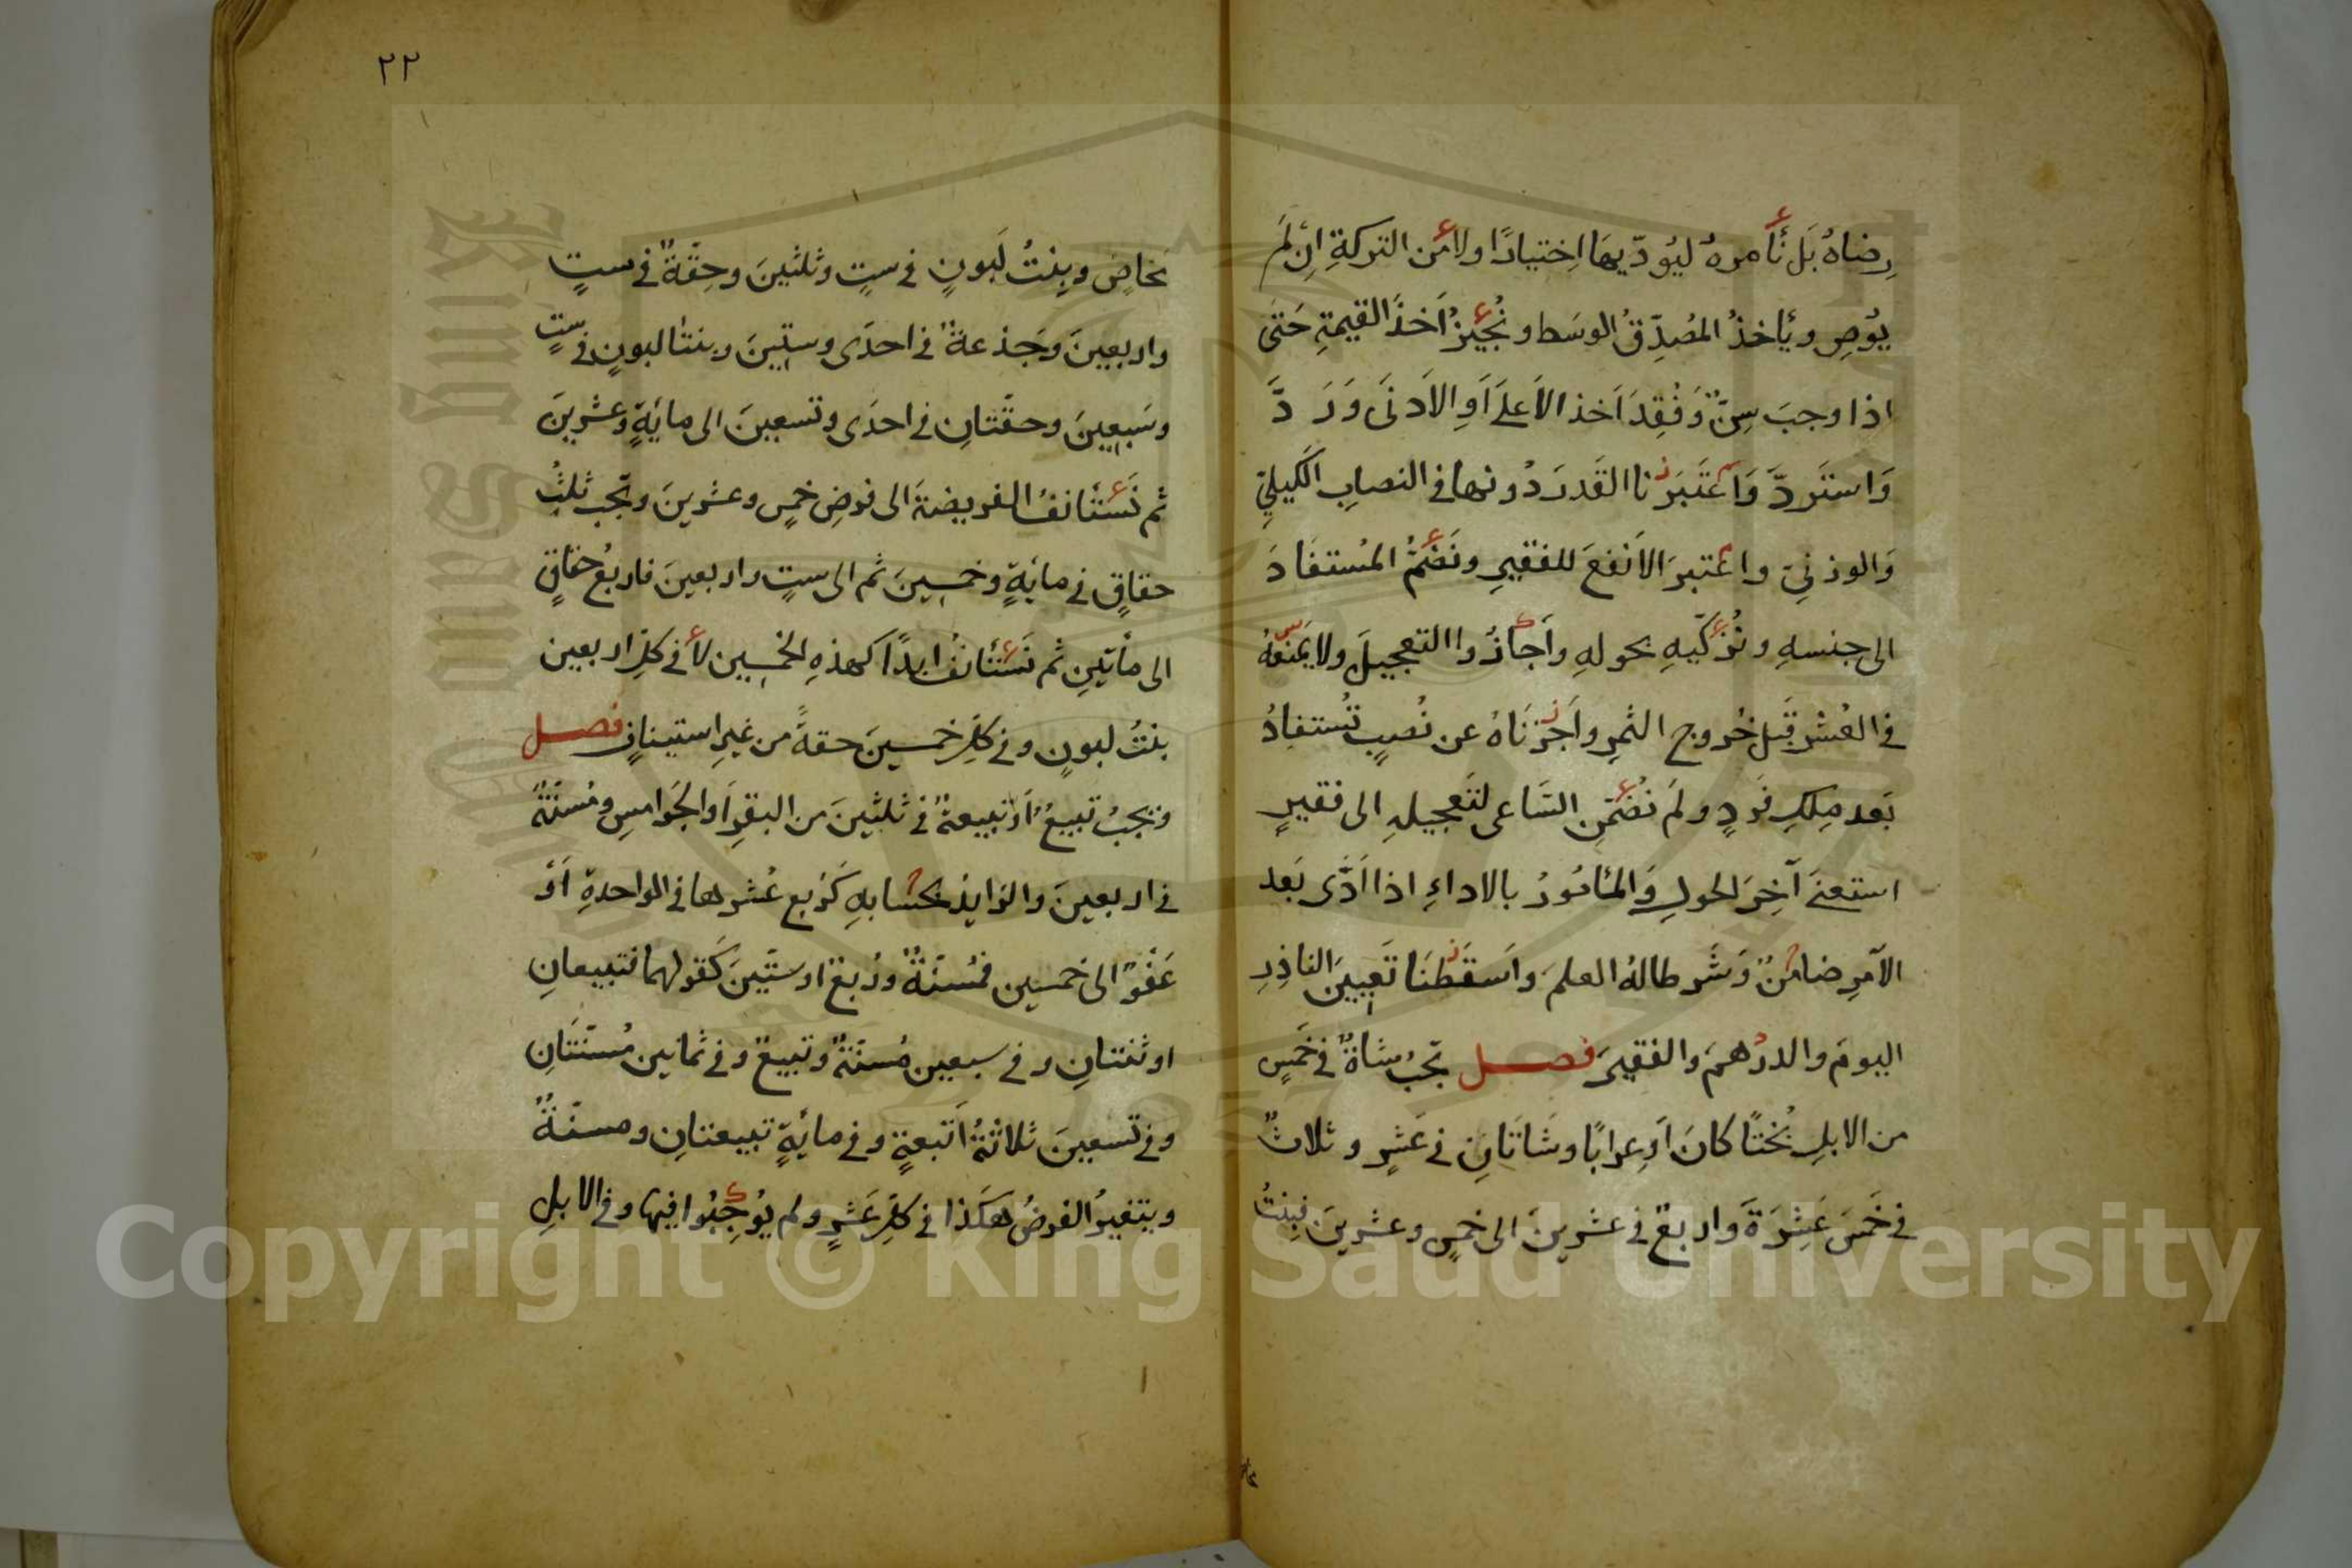 رِضاهُ بَل نَأمرهُ ليُودّيهَا اِختيارًا ولا من التركةِ اِن لَم
يُوصِ ويَأخذُ المُصدِّقُ الوسَط ونُجيزُ اَخذَ القيمةِ حَتى
اذا وجبَ سِنٌّ وَفُقِدَ اَخذ الاَعلَى اَوِ الاَدنَى وَرَدَّ
وَاستَردَّ وَاعتَبَرنا القَدرَ دُونها في النصابِ الكَيليِّ
وَالوزنيِّ واعتبرَ الاَنفعَ للفقيرِ ونَضُمُّ المُستفَادَ
الى جنسهِ ونُزكّيهِ بحولهِ واَجازُوا التعجيلَ ولا يَمنَعُهُ
في العُشرِ قبَل خُروج الثمرِ واَجَزنَاهُ عن نُصبٍ تُستفادُ
بَعد مِلكِ فَردٍ ولَم نُضَمِّنِ السَّاعى لتَعجيلهِ الى فقيرٍ
استغنَى آخِرَ الحولِ وَالمأمُورُ بالاداءِ اذا اَدَّى بَعد
الآمِرِ ضامنٌ وَشَرطا لهُ العلمَ وَاَسقَطنَا تَعيينَ الناذِرِ
اليومَ والدرهمَ والفقيرَ فصل تجبُ شاةٌ في خَمسٍ
من الابلِ بُختًا كانَ اَو عِرابًا وشَاتَانِ في عَشرٍ وثلاثٌ
في خَمسَ عَشرَةَ واربعٌ في عشرينَ الى خمسٍ وعشرينَ فبِنتُ
٢٢
مخاضٍ وبِنتُ لَبونٍ في ستٍ وثلثينَ وحِقَّةٌ في ستٍ
واربعينَ وجَذعةٌ في احدَى وستّينَ وبنتا لبونٍ في ستٍ
وسَبعينَ وحقَّتانِ في احدَى وتسعينَ الى مايَةٍ وعشرينَ
ثم نَستَأنفُ الفريضةَ الى فرضِ خمسٍ وعشرينَ وتجب ثلثُ
حقاقٍ في مايَةٍ وخمسينَ ثم الى ستٍ واربعينَ فاربعُ حقاقٍ
الى مأتَينِ ثم نَستَأنفُ ابدًا كهذهِ الخمسين لا في كلِّ اربعين
بنتُ لبونٍ وفي كلِّ خمسينَ حقةٌ من غيرِ استينافٍ فصل
ويجبُ تبيعٌ اَو تبيعةٌ في ثلثينَ من البقرِ اَو الجَوامسِ ومُسنّةٌ
في اربعينَ والزايدُ بحسابهِ كرُبع عُشرها في الواحدةِ اَو
عَفوٌ الى خمسين فمُسنّةٌ ورُبعٌ او ستّينَ كَقولهما فتبيعانِ
او ثنتانِ وفي سبعين مُسنّةٌ وتبيعٌ وفي ثمانين مُسنّتَانِ
وفي تسعينَ ثلاثةُ اَتبعةٍ وفي مائَةٍ تبيعتانِ ومسنّةٌ
ويتغيرُ الفرضُ هكَذا في كلِّ عَشرٍ ولم يُوجِبُوا فيها وفي الابلِ
Copyright © King Saud University